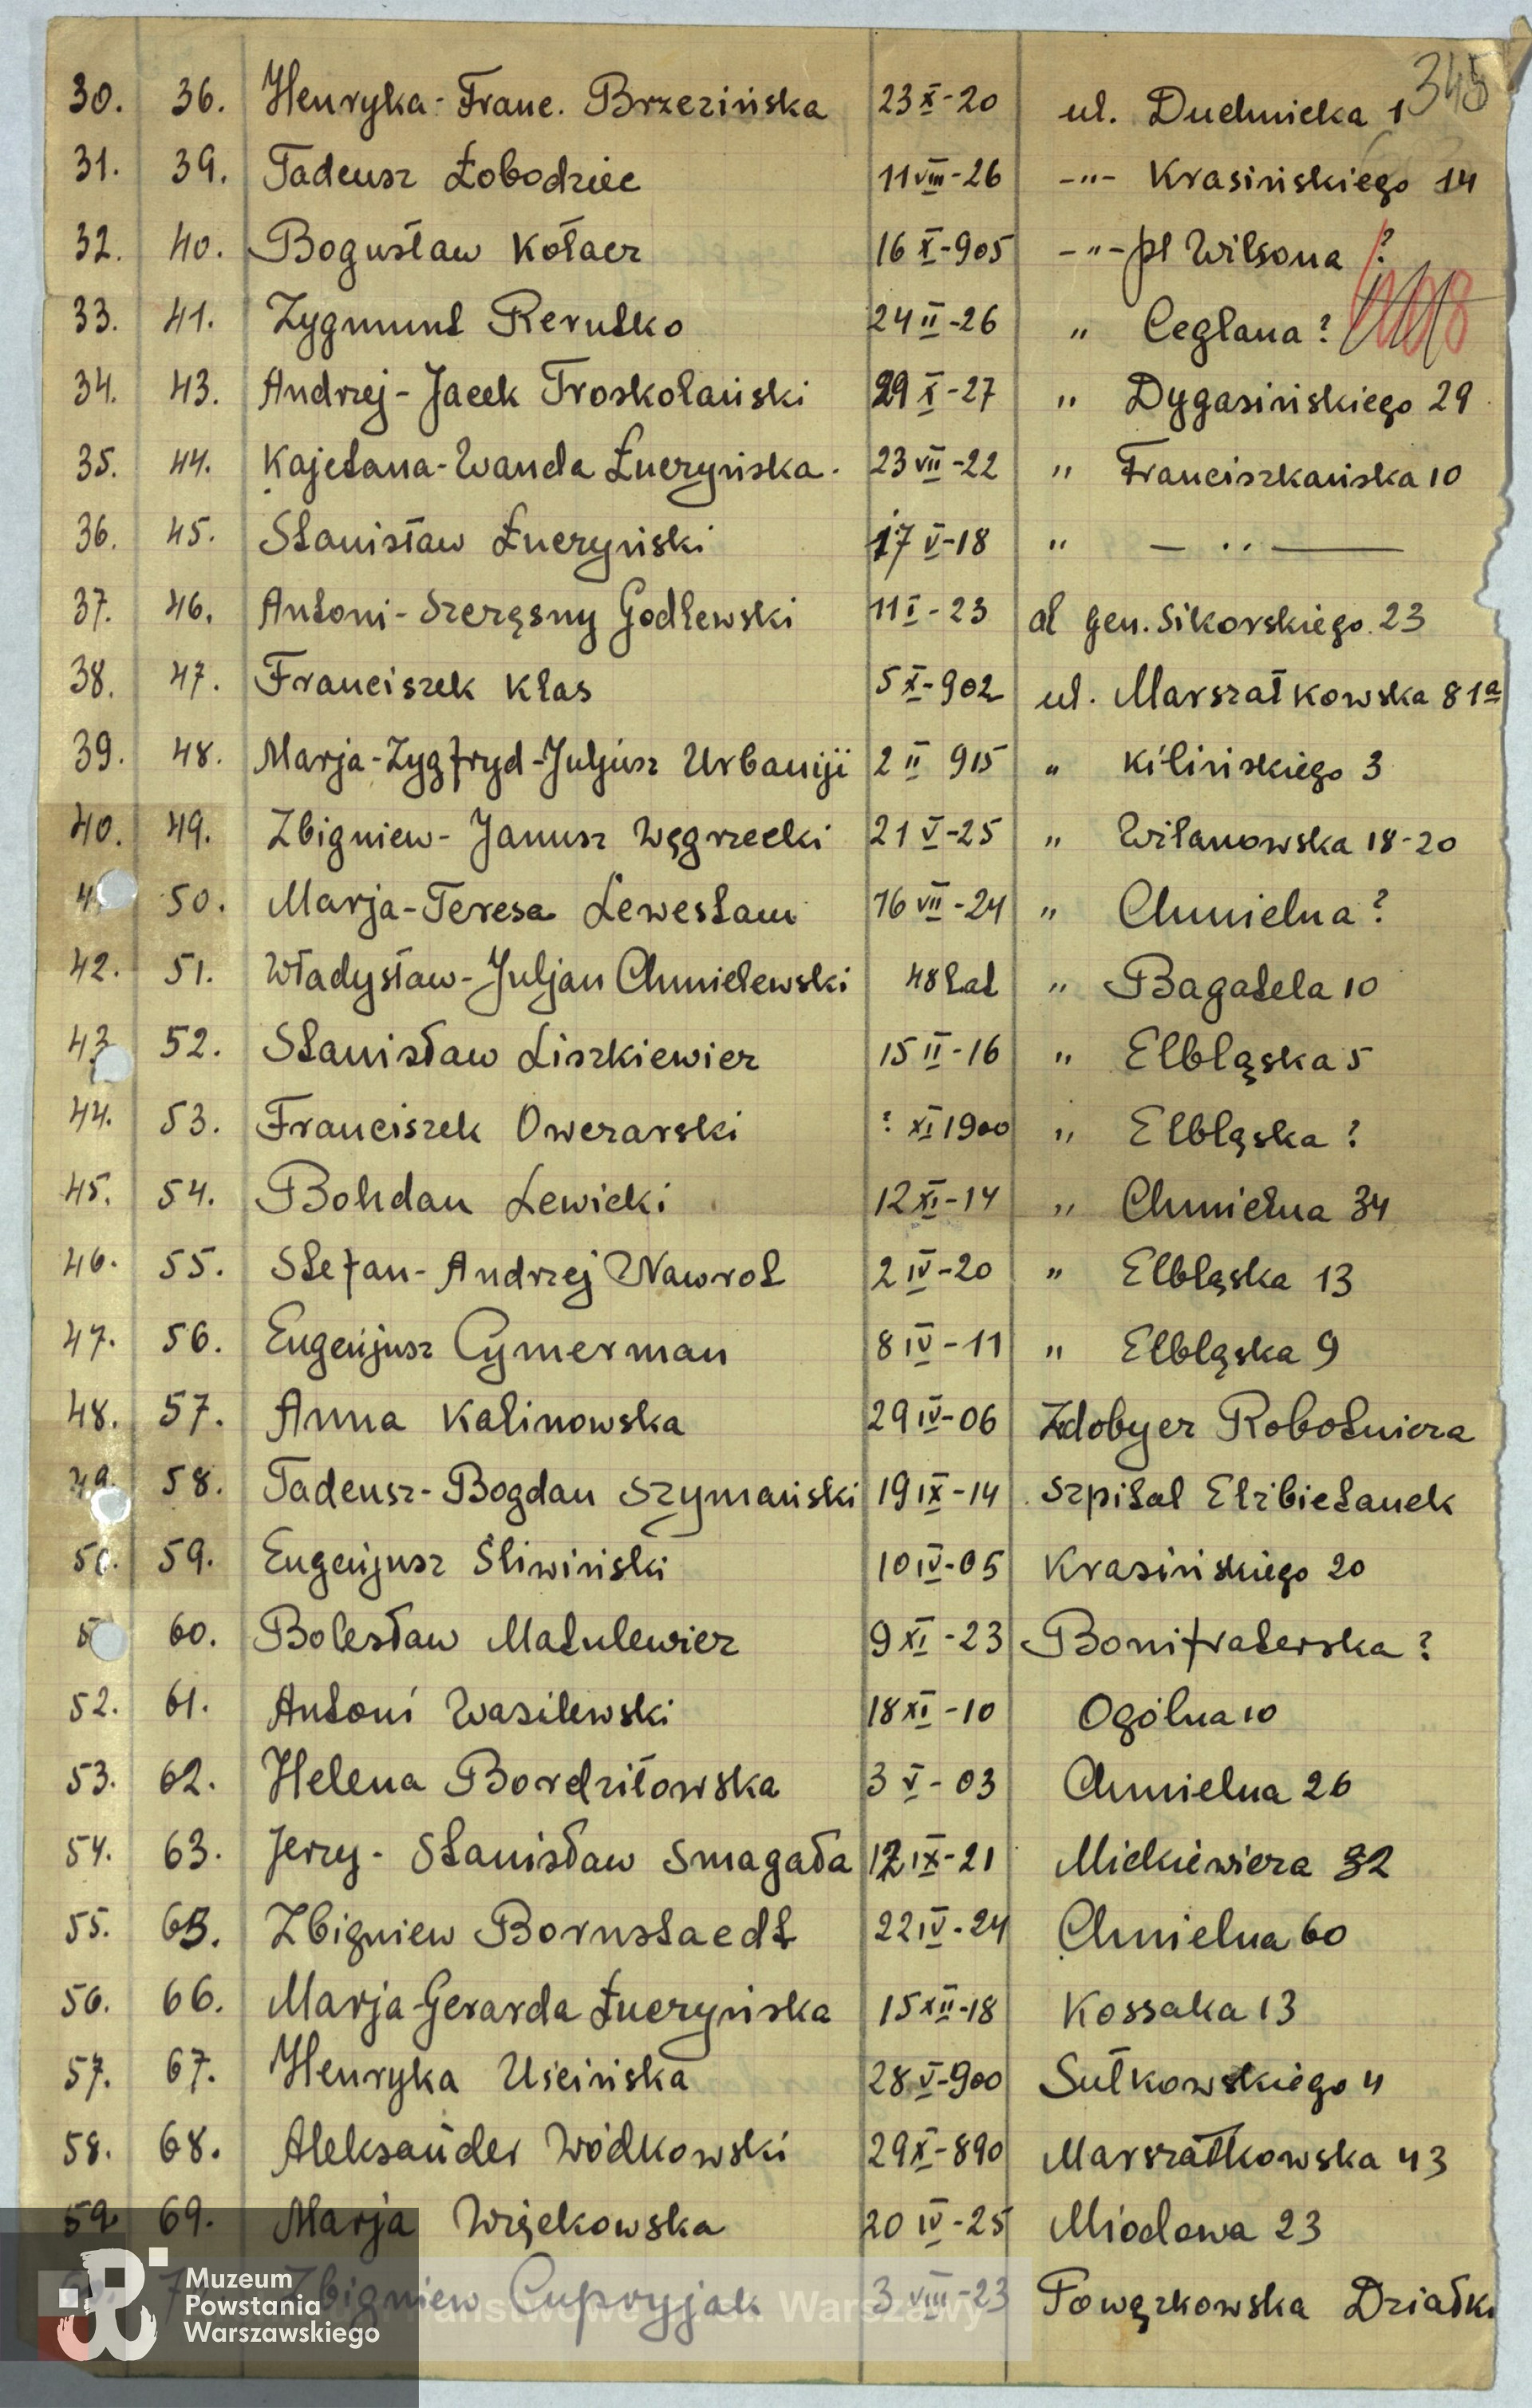 345
30. 36. Henryka-Franc. Brzezińska 23 X-20 ul. Duchnicka 1
31. 39. Tadeusz Łobodziec 11 VIII-26 -"- Krasińskiego 14
32. 40. Bogusław Kołacz 16 X-905 -"- pl Wilsona ?
33. 41. Zygmunt Rerutko 24 II-26 " Ceglana ?
34. 43. Andrzej-Jacek Troskolański 29 X-27 " Dygasińskiego 29
35. 44. Kajetana-Wanda Łuczyńska. 23 VII-22 " Franciszkańska 10
36. 45. Stanisław Łuczyński 17 V-18 " — .. —
37. 46. Antoni-Szczęsny Godlewski 11 I-23 al gen. Sikorskiego 23
38. 47. Franciszek Kłas 5 X-902 ul. Marszałkowska 81a
39. 48. Marja-Zygfryd-Juljusz Urbanyi 2 II 915 " Kilińskiego 3
40. 49. Zbigniew-Janusz Węgrzecki 21 V-25 " Wilanowska 18-20
4 50. Marja-Teresa Lewestam 16 VII-24 " Chmielna ?
42. 51. Władysław-Juljan Chmielewski 48 lat " Bagatela 10
43 52. Stanisław Liszkiewicz 15 II-16 " Elbląska 5
44. 53. Franciszek Owczarski ? XI 1900 " Elbląska ?
45. 54. Bohdan Lewicki 12 XI-14 " Chmielna 34
46. 55. Stefan-Andrzej Nawrot 2 IV-20 " Elbląska 13
47. 56. Eugenjusz Cymerman 8 IV-11 " Elbląska 9
48. 57. Anna Kalinowska 29 IV-06 Zdobycz Robotnicza
49. 58. Tadeusz-Bogdan Szymański 19 IX-14 Szpital Elżbietanek
50. 59. Eugenjusz Śliwiński 10 IV-05 Krasińskiego 20
5 60. Bolesław Matulewicz 9 XI-23 Bonifraterska ?
52. 61. Antoni Wasilewski 18 XI-10 Ogólna 10
53. 62. Helena Bordziłowska 3 V-03 Chmielna 26
54. 63. Jerzy-Stanisław Smagała 12 IX-21 Mickiewicza 32
55. 65. Zbigniew Bornstaedt 22 IV-24 Chmielna 60
56. 66. Marja-Gerarda Łuczyńska 15 XII-18 Kossaka 13
57. 67. Henryka Uścińska 28 V-900 Sułkowskiego 4
58. 68. Aleksander Wódkowski 29 X-890 Marszałkowska 43
59 69. Marja Więckowska 20 IV-25 Miodowa 23
Zbigniew Cupryjak 3 VIII-23 Powązkowska Działki
Muzeum
Powstania
Warszawskiego